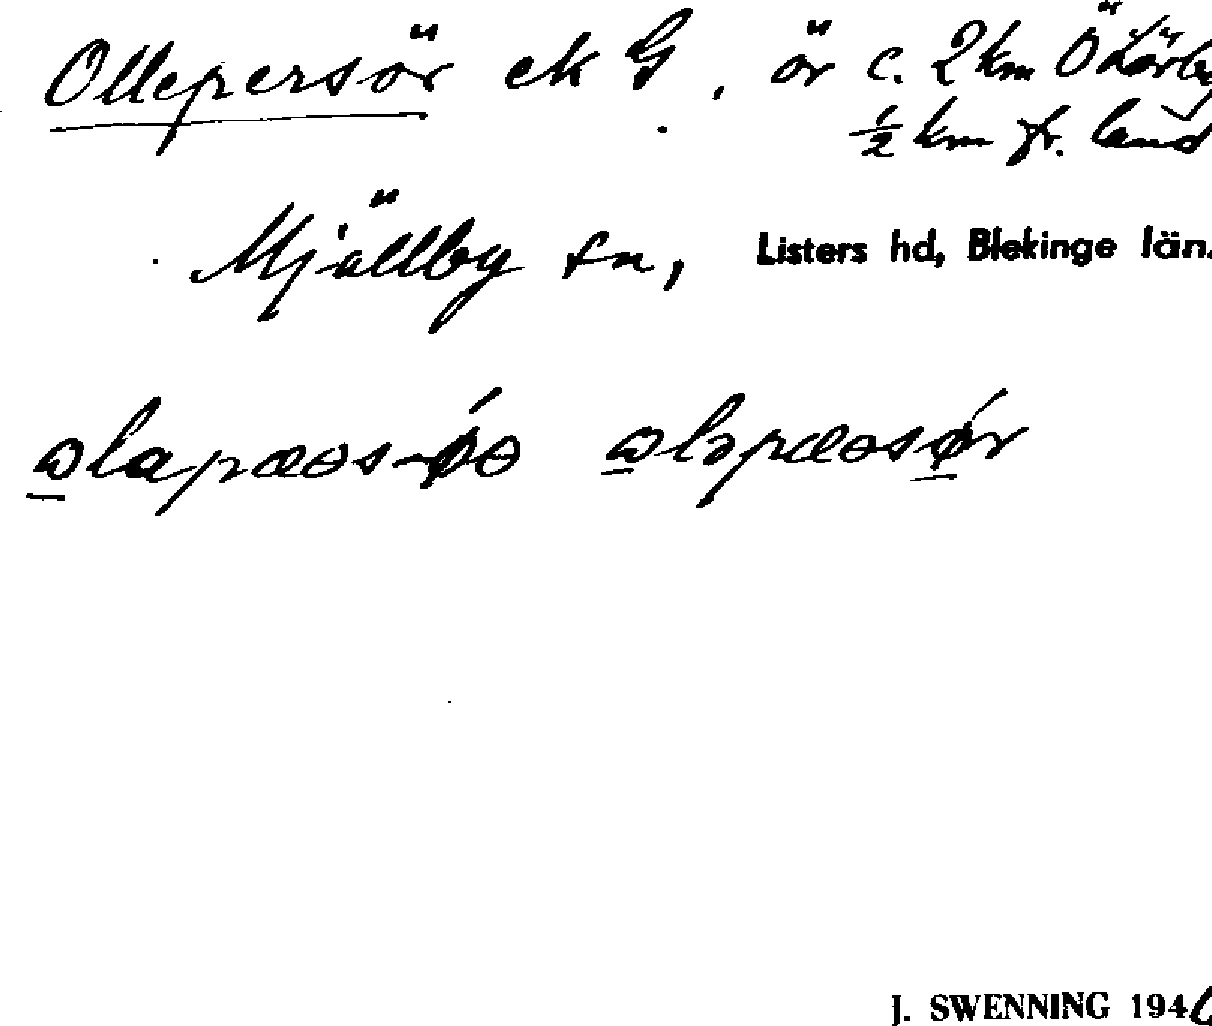 Ollepersör ek G, ör c. 2 km Ö Hörby
½ km fr. land
Mjällby sn, Listers hd, Blekinge län.
J. SWENNING 1946